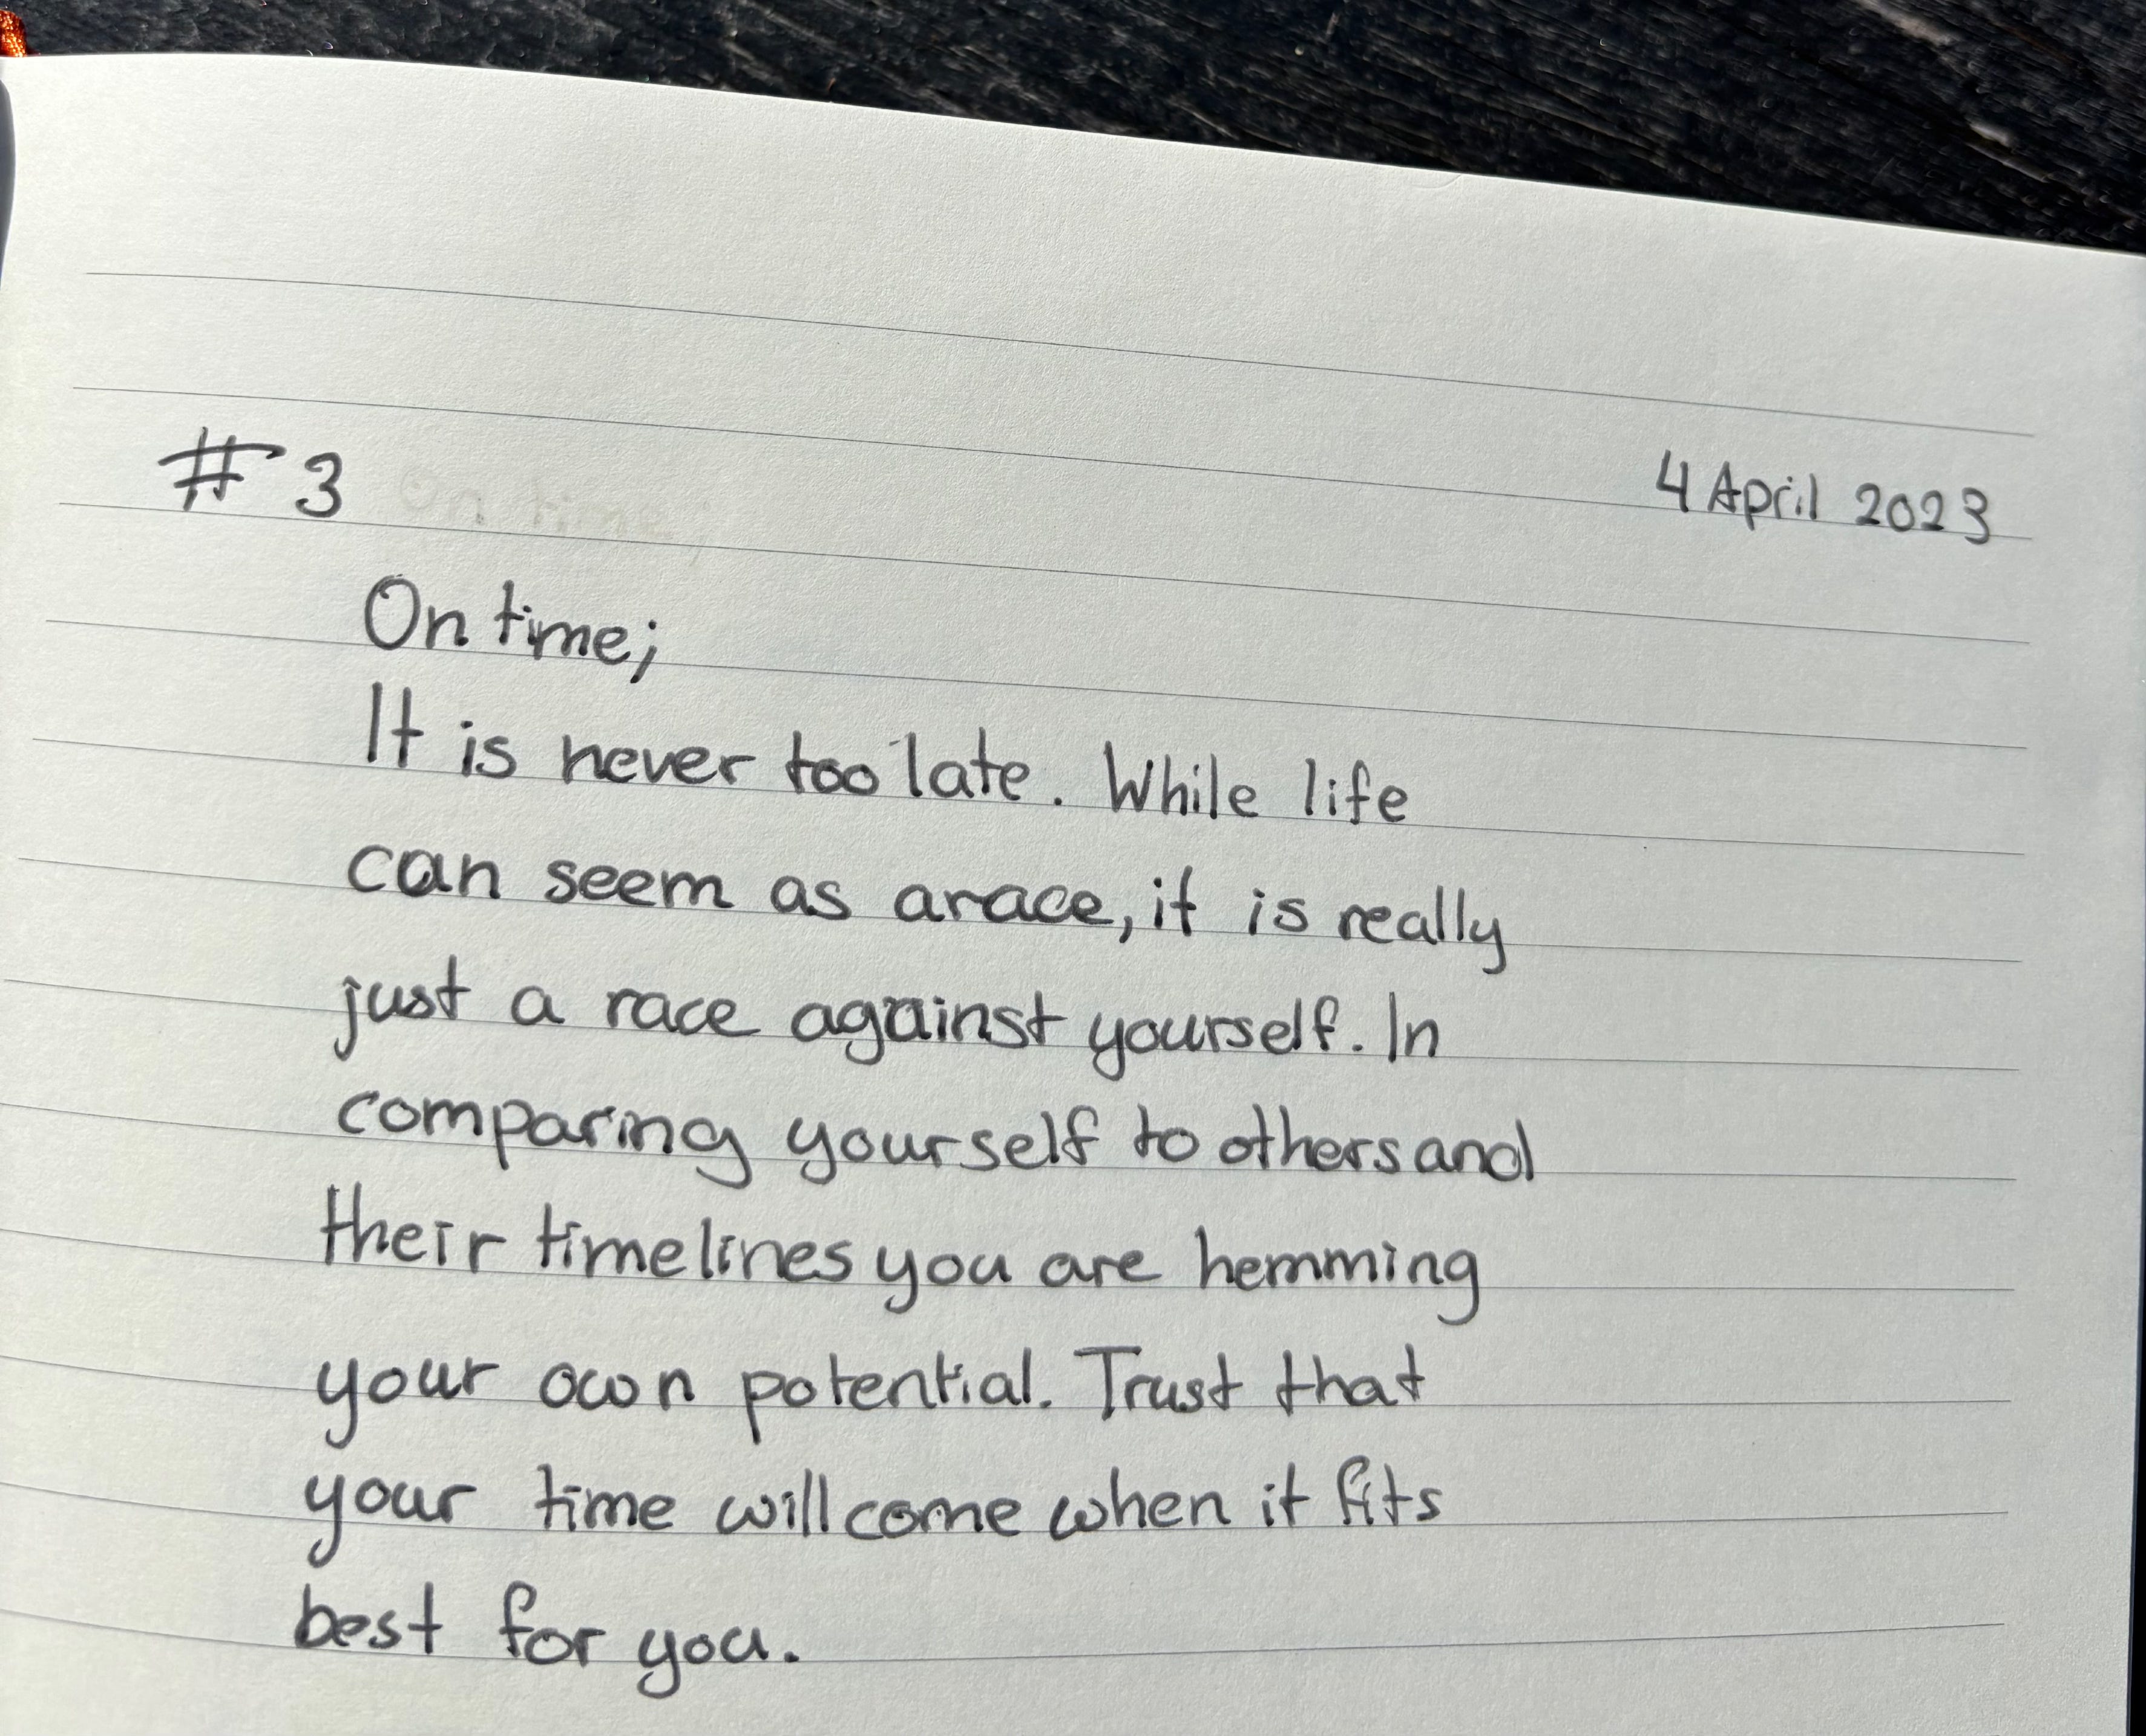 #3 On time;
4 April 2023
On time;
It is never too late. While life
can seem as a race, it is really
just a race against yourself. In
comparing yourself to others and
their timelines you are hemming
your own potential. Trust that
your time will come when it fits
best for you.